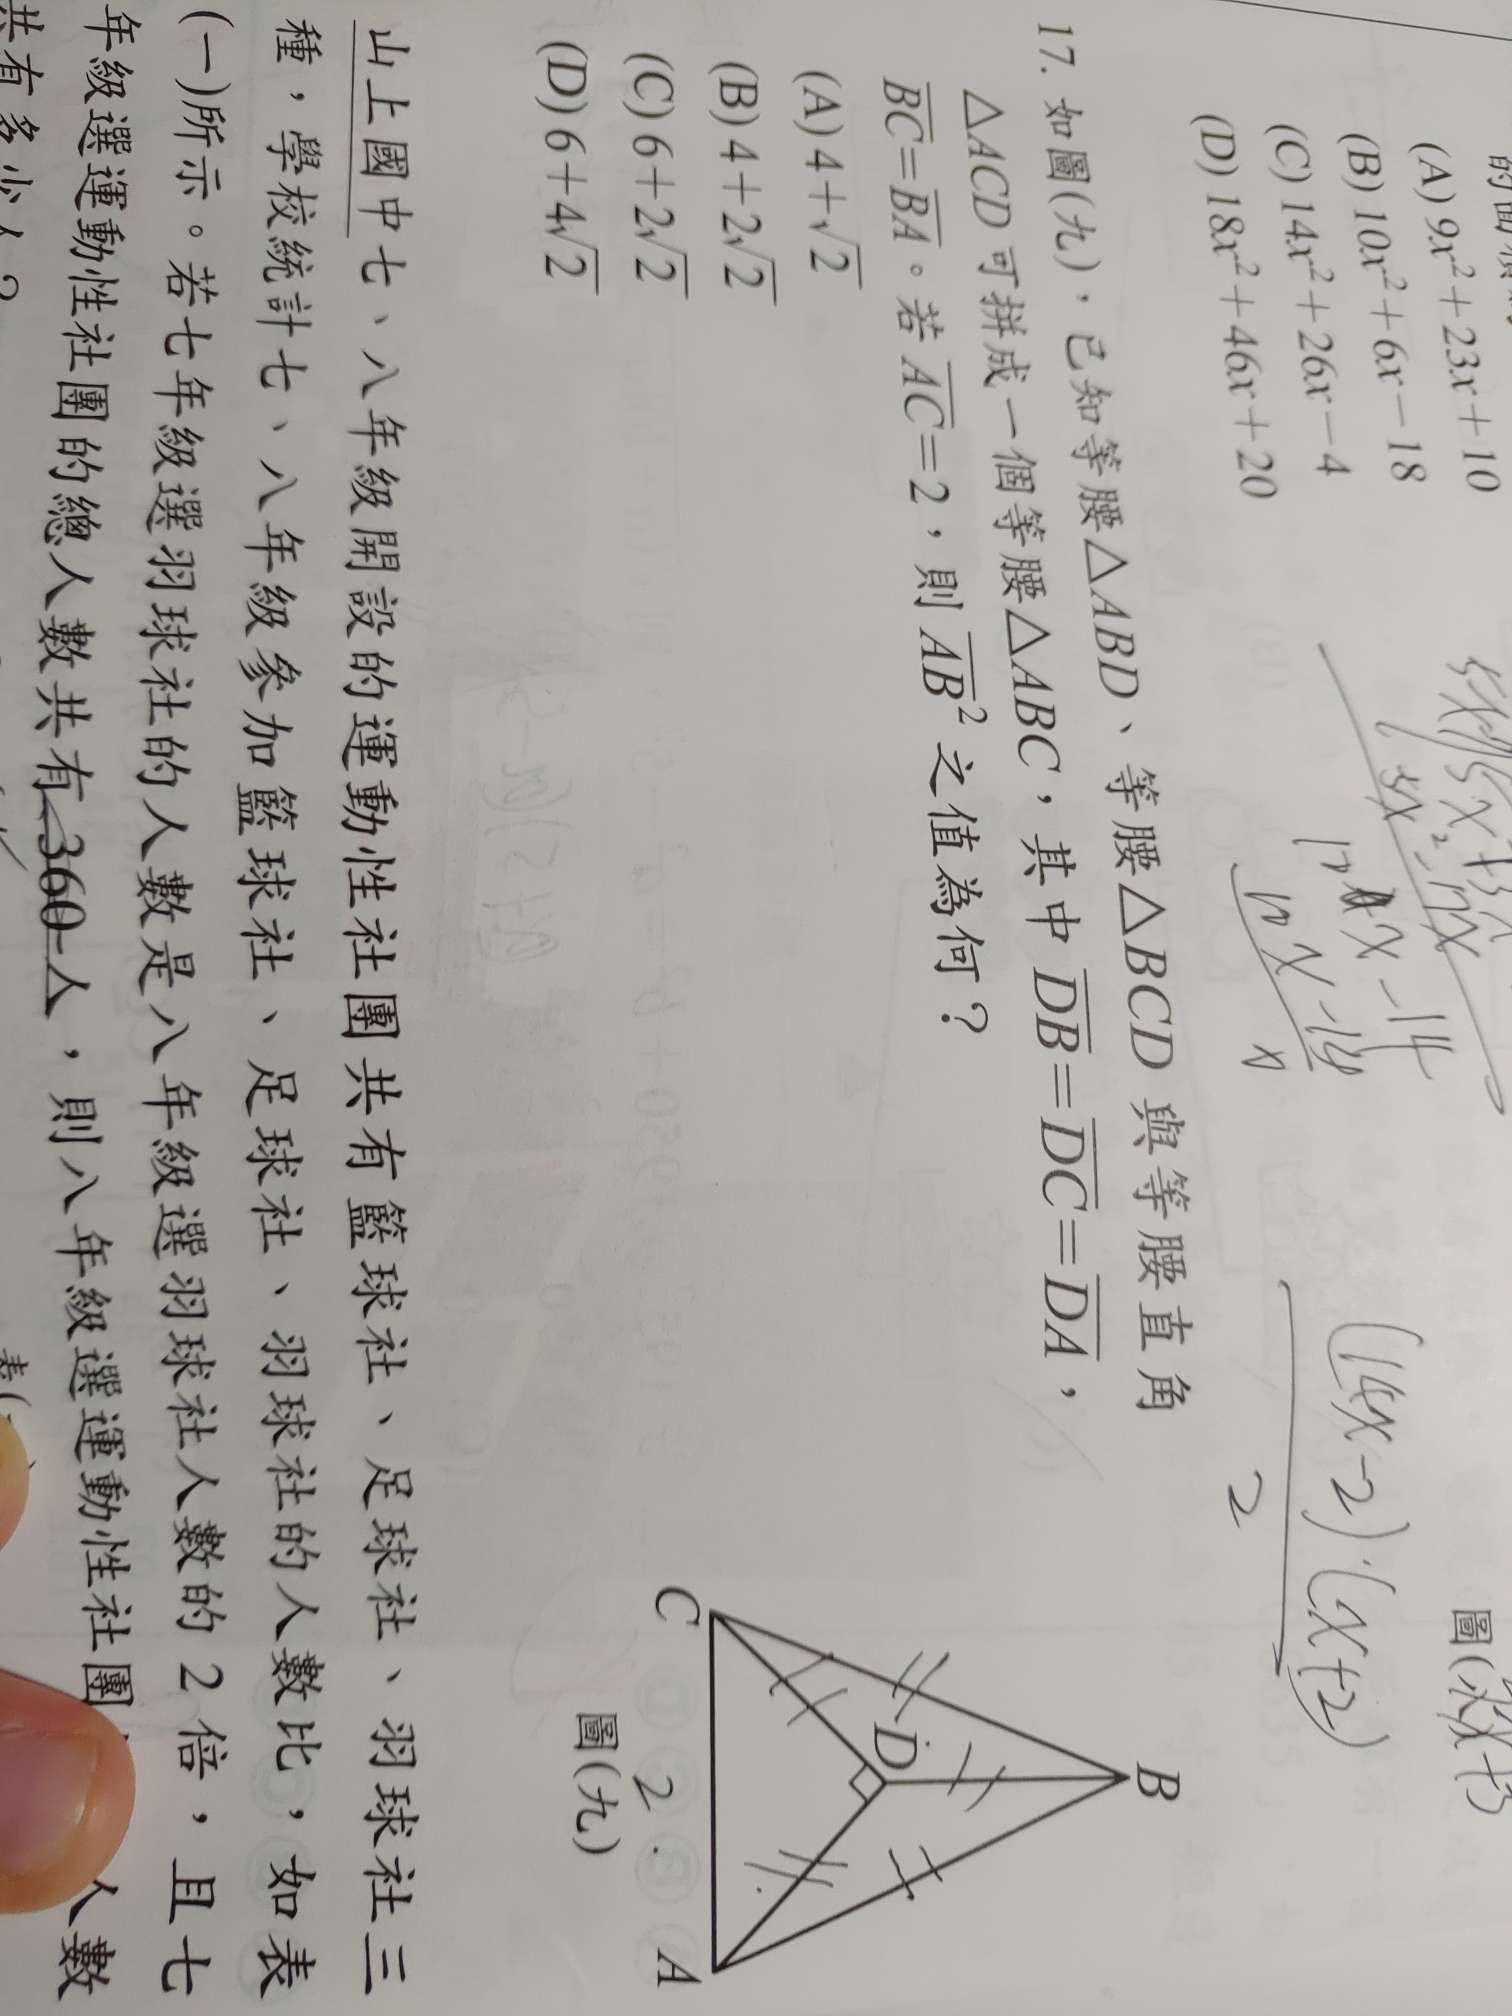 (A) 9x²+23x+10
(B) 10x²+6x−18
(C) 14x²+26x−4
(D) 18x²+46x+20
(14x−2)·(x+2)
2
17. 如圖(九),已知等腰△ABD、等腰△BCD 與等腰直角
△ACD 可拼成一個等腰△ABC,其中 DB=DC=DA,
BC=BA。若 AC=2,則 AB² 之值為何?
(A) 4+√2
(B) 4+2√2
(C) 6+2√2
(D) 6+4√2
B
D
C
2
A
圖(九)
山上國中七、八年級開設的運動性社團共有籃球社、足球社、羽球社三
種,學校統計七、八年級參加籃球社、足球社、羽球社的人數比,如表
(一)所示。若七年級選羽球社的人數是八年級選羽球社人數的 2 倍,且七
年級選運動性社團的總人數共有 360 人,則八年級選運動性社團 人數
共有多少人?